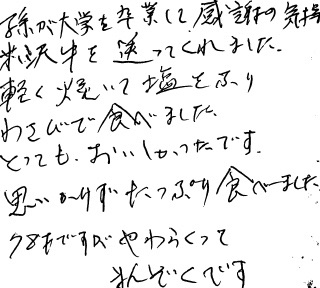 孫が大学を卒業して感謝の気持
米沢牛を送ってくれました。
軽く焼いて塩をふり
わさびで食べました。
とっても、おいしかったです。
思いがけずたっぷり食べました
78才ですがやわらくって
まんぞくです